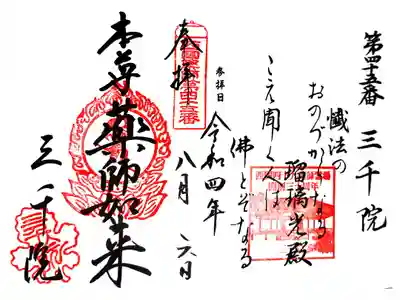 第四十五番 三千院
懺法の
おのづからなる
瑠璃光殿
こゑ聞く人は
佛とぞなる
参拝日
令和四年
八月 六日
奉拝
本尊薬師如来
三千院